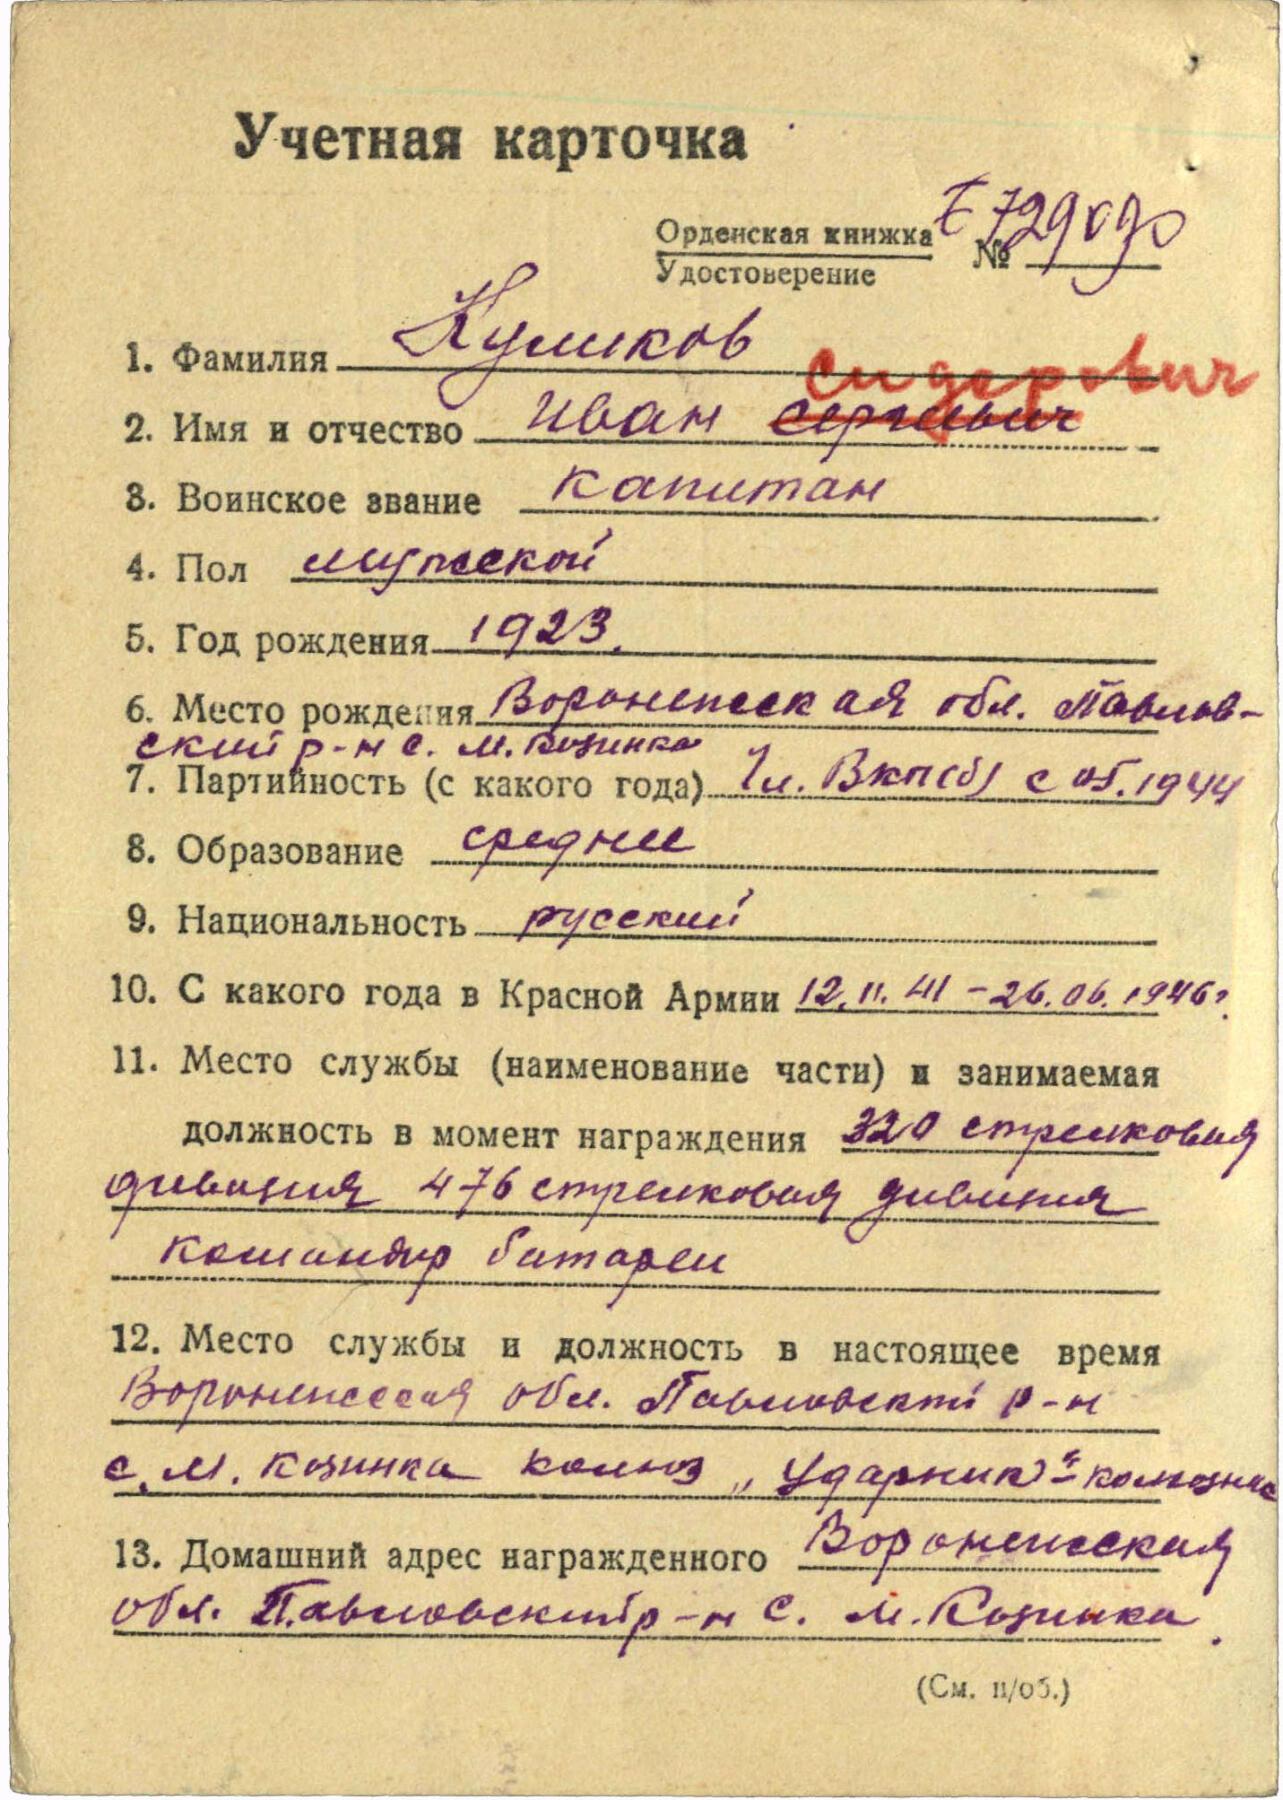 Учетная карточка
Орденская книжка № Е 729090
Удостоверение
1. Фамилия Куликов
сидорович
2. Имя и отчество Иван сергеевич
3. Воинское звание капитан
4. Пол мужской
5. Год рождения 1923.
6. Место рождения Воронежская обл. Павлов-
ский р-н с. М. Козинка
7. Партийность (с какого года) Чл. ВКП(б) с 05.1944
8. Образование среднее
9. Национальность русский
10. С какого года в Красной Армии 12.11.41 - 26.06.1946г.
11. Место службы (наименование части) и занимаемая
должность в момент награждения 320 стрелковая
дивизия 476 стрелковая дивизия
командир батареи
12. Место службы и должность в настоящее время
Воронежская обл. Павловский р-н
с. М. Козинка колхоз „Ударник" - колхозник
13. Домашний адрес награжденного Воронежская
обл. Павловский р-н с. М. Козинка.
(См. н/об.)